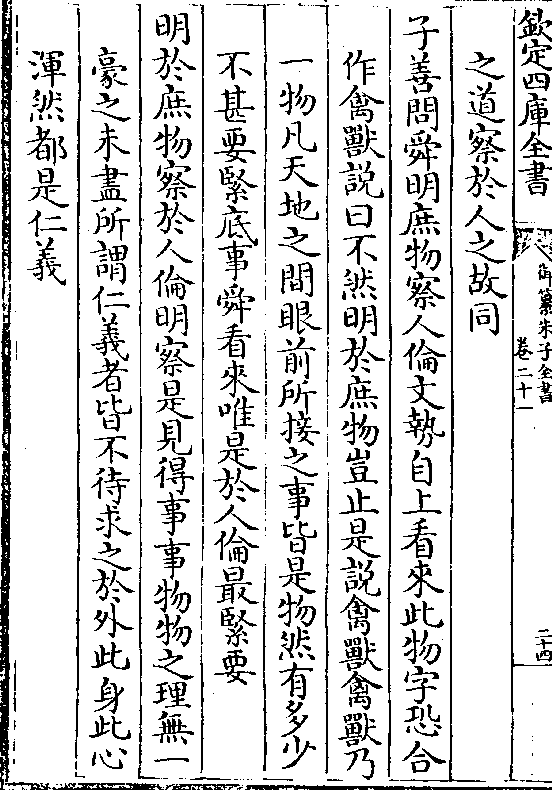 欽定四庫全書
御纂朱子全書
卷二十一
二十四
之道察於人之故同
子善問舜明庶物察人倫文埶自上看來此物字恐合
作禽獸説曰不然明於庶物豈止是説禽獸禽獸乃
一物凡天地之間眼前所接之事皆是物然有多少
不甚要緊底事舜看來唯是於人倫最緊要
明於庶物察於人倫明察是見得事事物物之理無一
豪之未盡所謂仁義者皆不待求之於外此身此心
渾然都是仁義